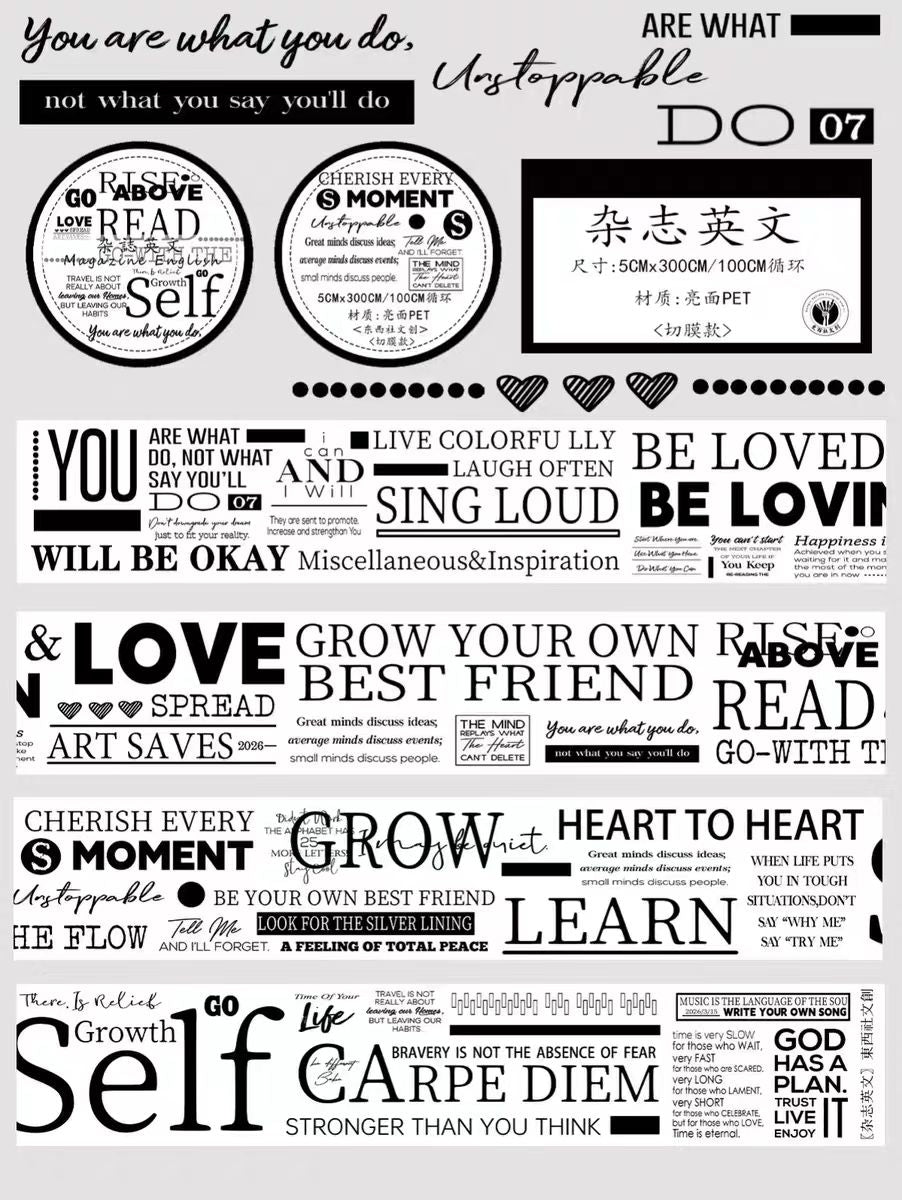 You are what you do,
not what you say you'll do
ARE WHAT
Unstoppable
DO 07
GO RISE
ABOVE
LOVE READ
SPREAD
杂志英文
Magazine English
There Is Relief
TRAVEL IS NOT
REALLY ABOUT
leaving our Homes,
BUT LEAVING OUR
HABITS
Growth
GO
Self
You are what you do,
CHERISH EVERY
S MOMENT
Unstoppable
S
Great minds discuss ideas;
average minds discuss events;
small minds discuss people.
Tell Me
AND I'LL FORGET.
THE MIND
REPLAYS WHAT
The Heart
CAN'T DELETE
5CM×300CM/100CM循环
材质:亮面PET
<东西社文创>
<切膜款>
杂志英文
尺寸:5CM×300CM/100CM循环
材质:亮面PET
<切膜款>
YOU
ARE WHAT
DO, NOT WHAT
SAY YOU'LL
DO 07
Don't downgrade your dream
just to fit your reality.
i
can
AND
I Will
They are sent to promote,
Increase and strengthen You
LIVE COLORFU LLY
LAUGH OFTEN
SING LOUD
WILL BE OKAY Miscellaneous&Inspiration
BE LOVED
BE LOVIN
Start Where you are.
Use What you Have.
Do What you Can
You can't start
THE NEXT CHAPTER
OF YOUR LIFE IF
You Keep
RE-READING THE
Happiness i
Achieved when you s
waiting for it and ma
the most of the mom
you are in now
& LOVE
N
SPREAD
ART SAVES 2026—
GROW YOUR OWN
BEST FRIEND
Great minds discuss ideas;
average minds discuss events;
small minds discuss people.
THE MIND
REPLAYS WHAT
The Heart
CAN'T DELETE
You are what you do,
not what you say you'll do
RISE
ABOVE
READ
GO-WITH TH
CHERISH EVERY
S MOMENT
Unstoppable
HE FLOW
Tell Me
AND I'LL FORGET.
Didn't Work
THE ALPHABET HAS
25
MORE LETTERS
Stay Cool
GROW
may be quiet.
BE YOUR OWN BEST FRIEND
LOOK FOR THE SILVER LINING
A FEELING OF TOTAL PEACE
HEART TO HEART
Great minds discuss ideas;
average minds discuss events;
small minds discuss people.
LEARN
WHEN LIFE PUTS
YOU IN TOUGH
SITUATIONS,DON'T
SAY “WHY ME”
SAY “TRY ME”
There Is Relief
GO
Growth
Self
Time Of Your
Life
TRAVEL IS NOT
REALLY ABOUT
leaving our Homes,
BUT LEAVING OUR
HABITS.
BRAVERY IS NOT THE ABSENCE OF FEAR
CARPE DIEM
STRONGER THAN YOU THINK
MUSIC IS THE LANGUAGE OF THE SOU
2026/3/15 WRITE YOUR OWN SONG
time is very SLOW
for those who WAIT,
very FAST
for those who are SCARED,
very LONG
for those who LAMENT,
very SHORT
for those who CELEBRATE,
but for those who LOVE,
Time is eternal.
GOD
HAS A
PLAN.
TRUST
LIVE IT
ENJOY
〖杂志英文〗東西社文創